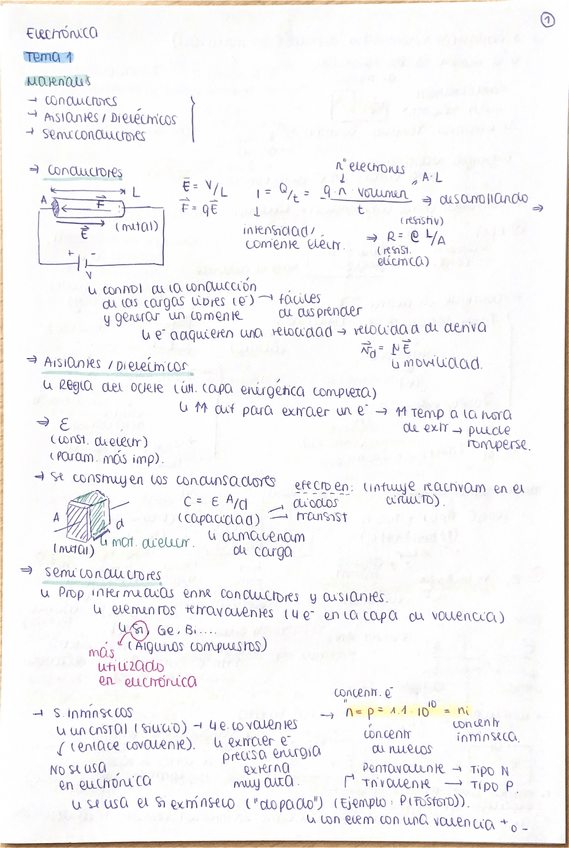 ①
Electrónica
Tema 1
Materiales
→ conductores
→ Aislantes / Dieléctricos
→ semiconductores
⇒ conductores
A L F E (metal) + - V
E = V/L
F = qE
nº electrones
I = Q/t = q·n·volumen / t
" A·L
⇒ desarrollando ⇒
↓
intensidad/
corriente eléctr.
(resistiv)
⇒ R = ρ L/A
(resist.
eléctrica)
↳ control de la conducción
de las cargas libres (e⁻) → fáciles
y generar un corriente de desprender
↳ e⁻ adquieren una velocidad → velocidad de deriva
Nd = μE
↳ movilidad.
⇒ Aislantes / Dieléctricos
↳ Regla del octete (últ. capa energética completa)
↳ ↑↑ dif para extraer un e⁻ → ↑↑ Temp a la hora
de extr → puede
romperse.
⇒ ε
(const. dieléctr)
(param. más imp).
→ se construyen los condensadores
efecto en: (influye reactivam en el
circuito).
→ diodos
→ transist
C = ε A/d
(capacidad)
↳ almacenam
de carga
A d
(metal)
↳ mat. dieléctr.
⇒ semiconductores
↳ Prop intermedias entre conductores y aislantes.
↳ elementos tetravalentes (4 e⁻ en la capa de valencia)
↳ Si, Ge, B....
(Algunos compuestos)
más
utilizado
en electrónica
→ S. intrínsecos
↳ un cristal (silicio) → 4 e. covalentes
(enlace covalente).
↳ extraer e⁻
precisa energía
externa
muy alta.
No se usa
en electrónica
concentr. e⁻
→ n = p = 1.1 · 10¹⁰ = ni
concentr
de huecos
concentr
intrínseca.
Pentavalente → Tipo N
Trivalente → Tipo P.
↳ se usa el si extrínseco ("dopado") (Ejemplo: P(Fósforo)).
↳ con elem con una valencia + o -